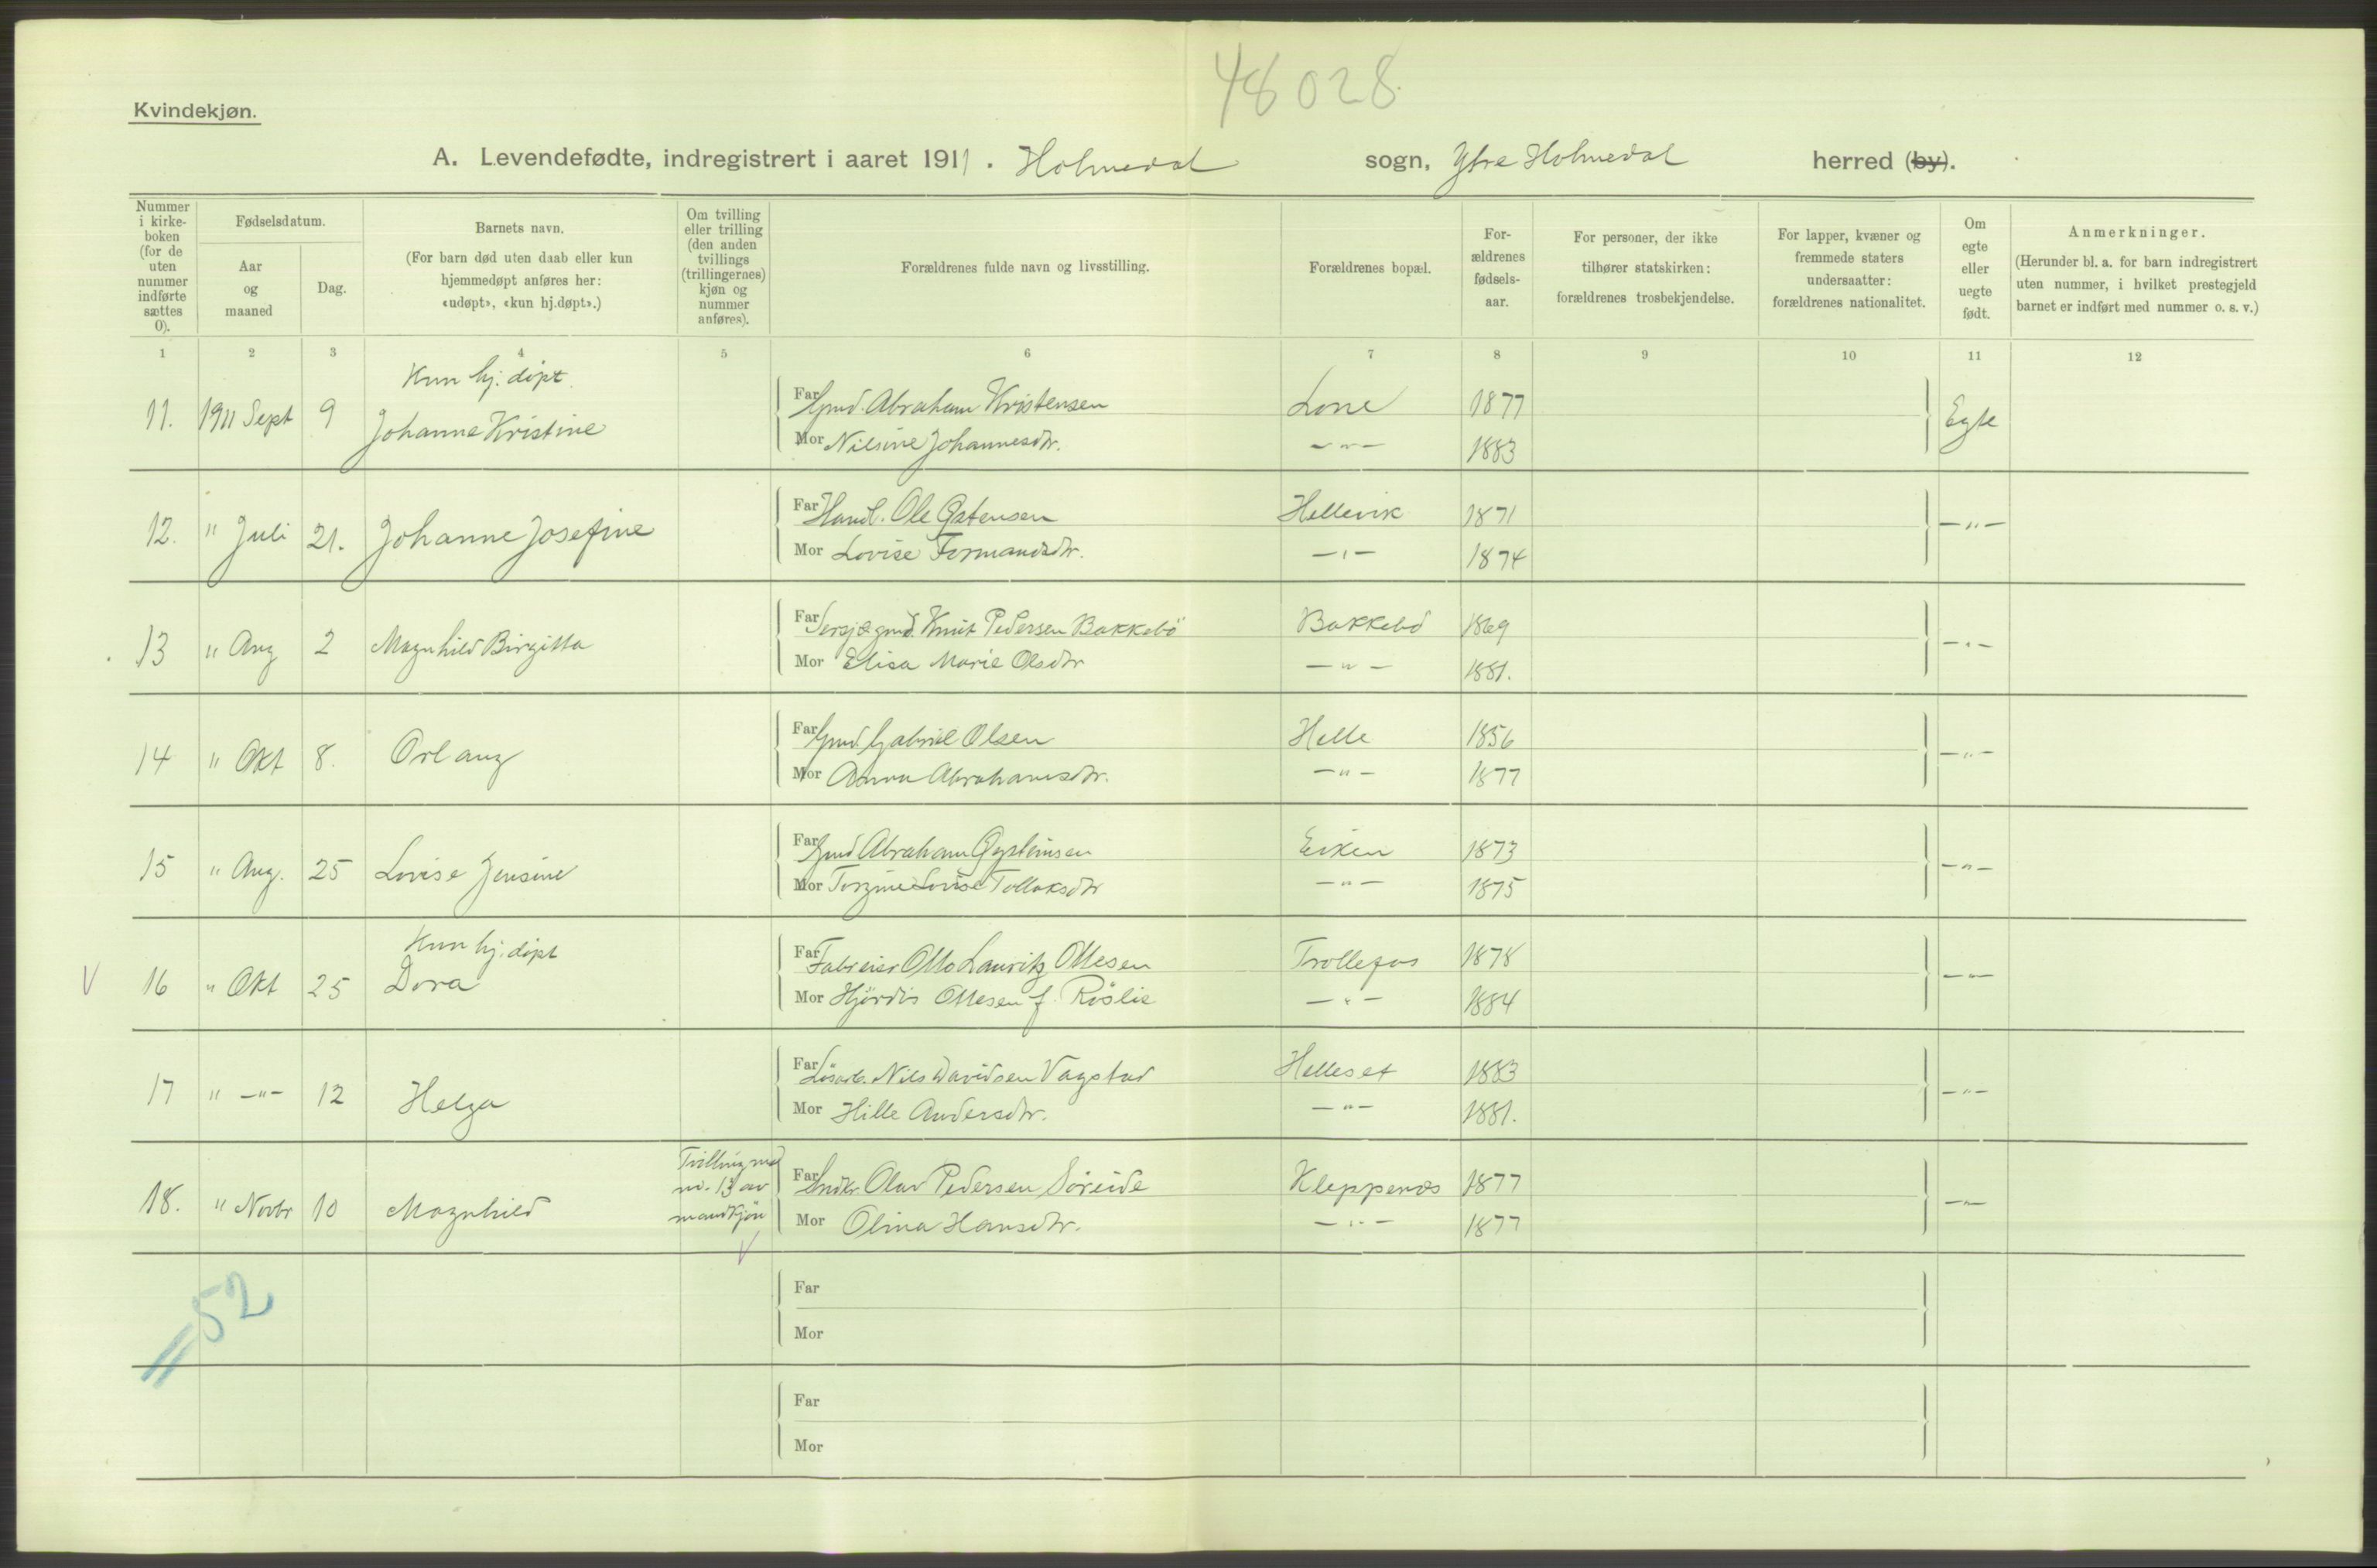 48028
Kvindekjøn.
A. Levendefødte, indregistrert i aaret 1911. Holmedal sogn, Ytre Holmedal herred (by).
Nummer i kirke-boken (for de uten nummer indførte sættes 0).
Fødselsdatum.
Aar og maaned
Dag.
Barnets navn.
(For barn død uten daab eller kun hjemmedøpt anføres her: «udøpt», «kun hj.døpt».)
Om tvilling eller trilling (den anden tvillings (trillingernes) kjøn og nummer anføres).
Forældrenes fulde navn og livsstilling.
Forældrenes bopæl.
For-ældrenes fødsels-aar.
For personer, der ikke tilhører statskirken: forældrenes trosbekjendelse.
For lapper, kvæner og fremmede staters undersaatter: forældrenes nationalitet.
Om egte eller uegte født.
Anmerkninger.
(Herunder bl. a. for barn indregistrert uten nummer, i hvilket prestegjeld barnet er indført med nummer o. s. v.)
1 2 3 4 5 6 7 8 9 10 11 12
Kun hj. døpt.
11. 1911 Sept 9 Johanne Kristine
Far Gmd. Abraham Kristensen Lone 1877 Egte
Mor Nilsine Johannesdtr. —"— 1883
12. " Juli 21. Johanne Josefine
Far Handl. Ole Østensen Hellevik 1871 —"—
Mor Lovise Formandsdtr. —"— 1874
13 " Aug 2 Magnhild Birgitta
Far Sersj & gmd. Knut Pedersen Bakkebö Bakkebö 1869 —"—
Mor Elisa Marie Olsdtr —"— 1881.
14 " Okt 8. Orlaug
Far Gmd. Gabriel Olsen Helle 1856 —"—
Mor Anna Abrahamsdtr. —"— 1877
15 " Aug. 25 Lovise Jensine
Far Gmd Abraham Øysteinsen Eiken 1873 —"—
Mor Torgine Lovise Tollaksdtr —"— 1875
Kun hj. døpt
16 " Okt 25 Dora
Far Fabreier Otto Lauritz Ottesen Trollefos 1878 —"—
Mor Hjördis Ottesen f. Röslie —"— 1884
17 " —"— 12 Helga
Far Lösarb. Nils Davidsen Vagstad Helleset 1883 —"—
Mor Hille Andersdtr. —"— 1881.
18. " Novbr 10 Magnhild
Tvilling med no. 13 av mandkjön
Far Olav Pedersen Söreide Kleppenes 1877 —"—
Mor Olina Hansdtr. —"— 1877
52
Far
Mor
Far
Mor